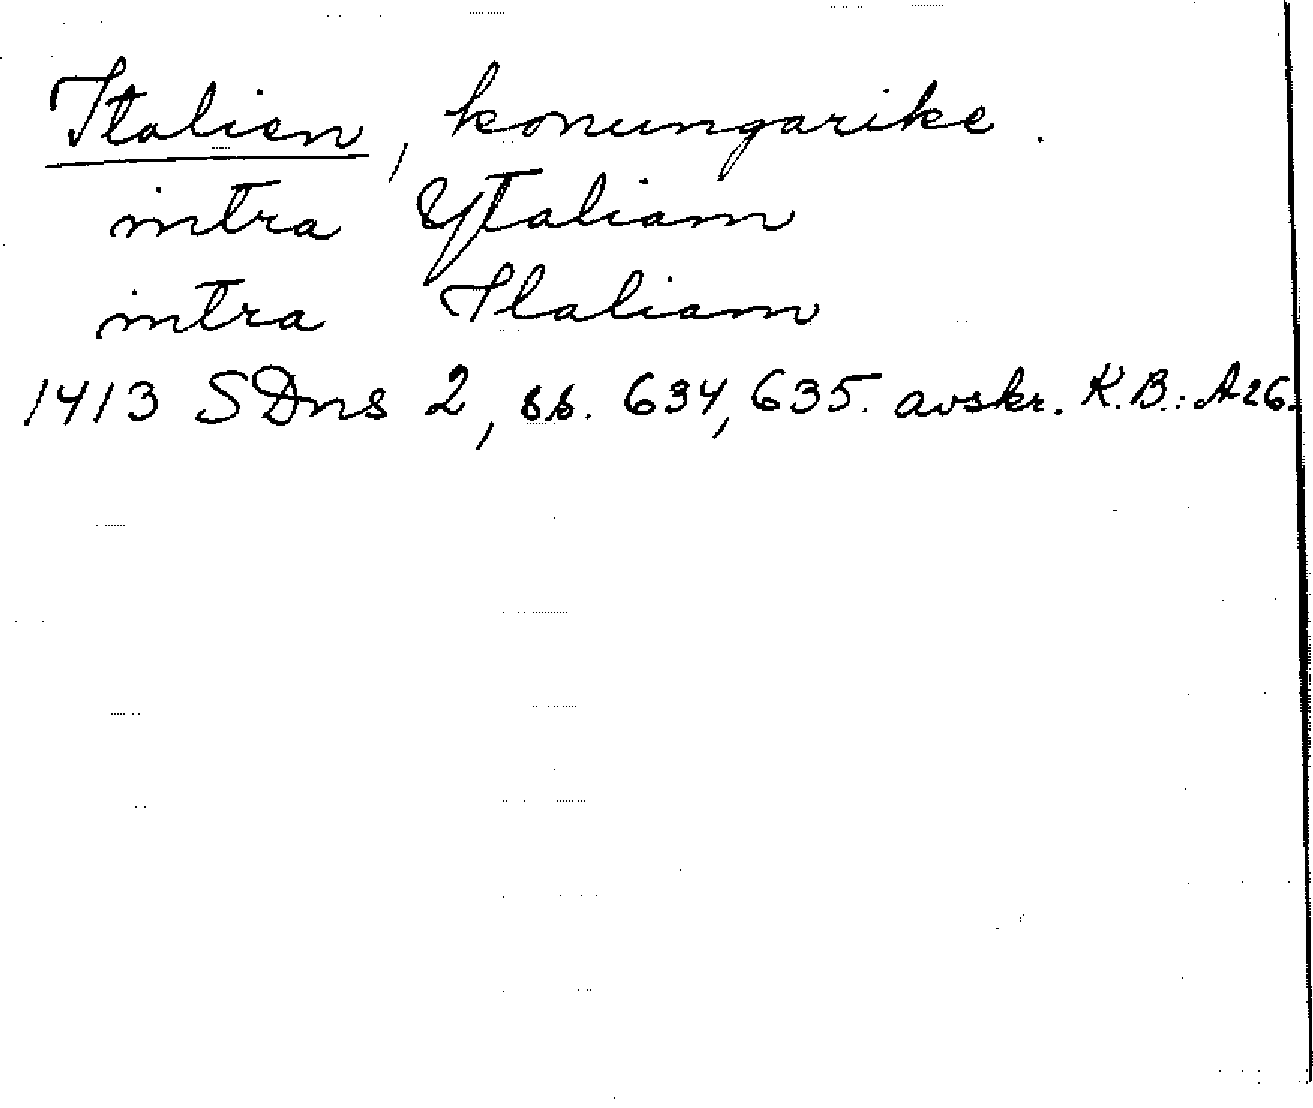 Italien, konungarike.
intra Ytaliam
intra Italiam
1413 SDns 2, ss. 634, 635. avskr. K.B.: A 26.